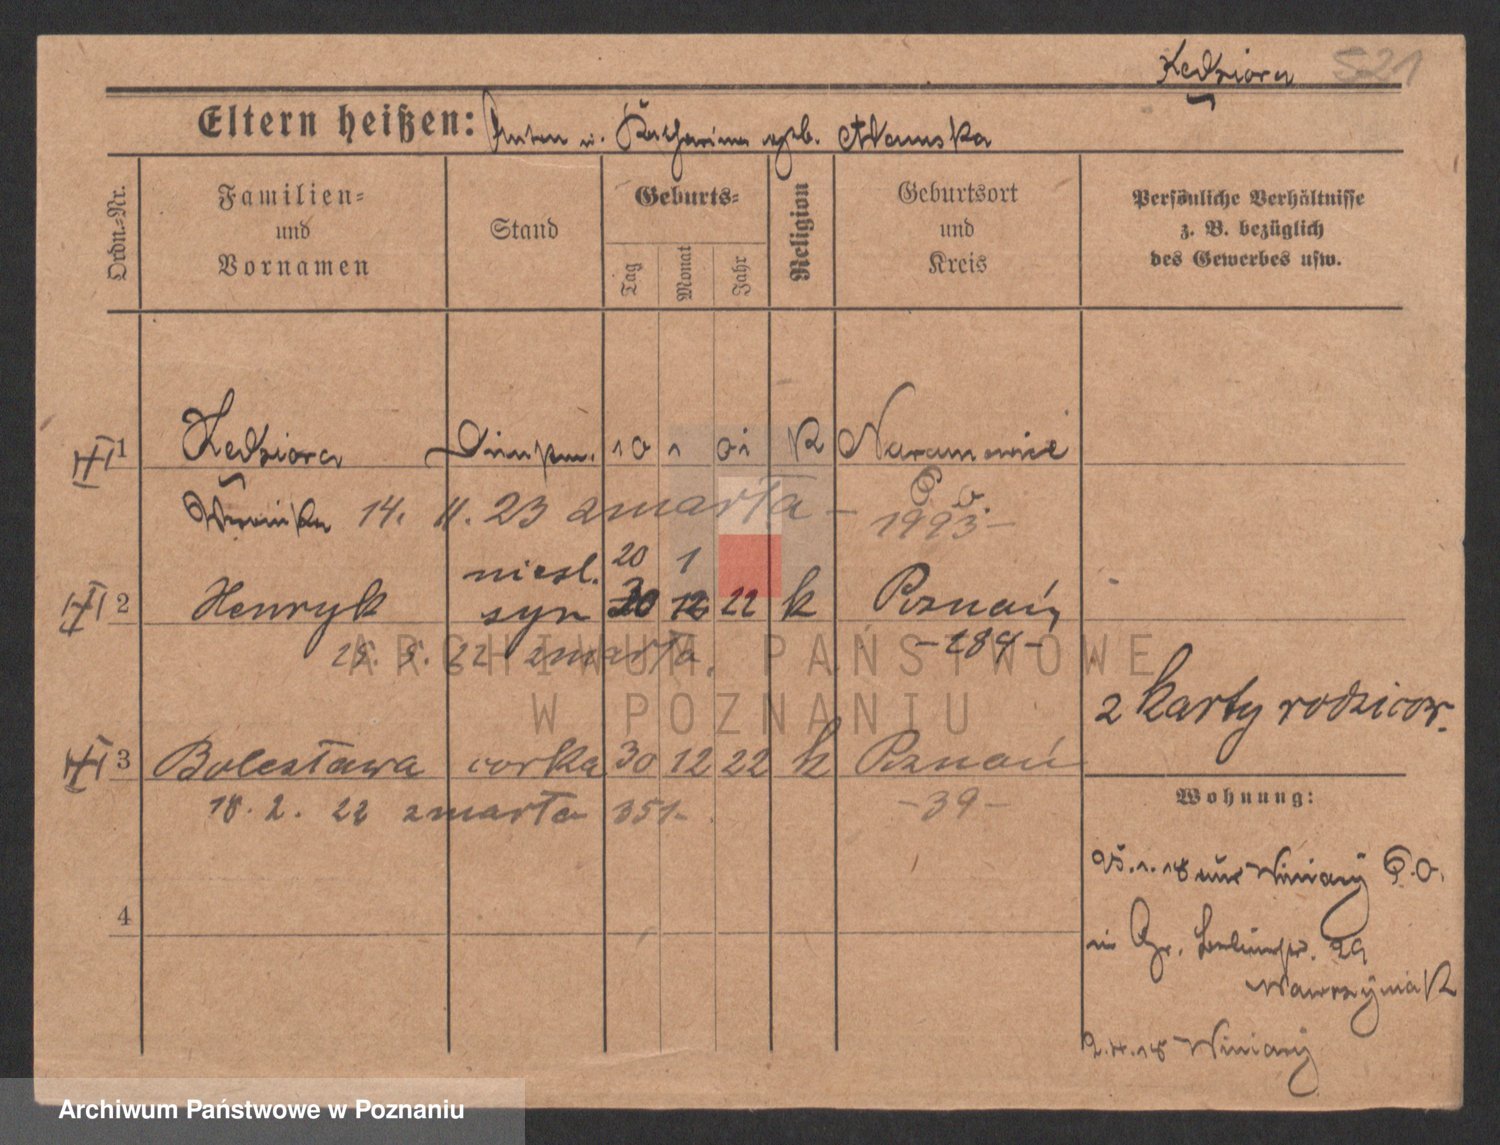 Kędziora 521
Eltern heißen: Anton u. Katharina geb. Adamska
Ordn.-Nr.
Familien-
und
Vornamen
Stand
Geburts-
Tag
Monat
Jahr
Religion
Geburtsort
und
Kreis
Persönliche Verhältnisse
z. B. bezüglich
des Gewerbes usw.
1 Kędziora 10 1 01 K Naramowice
Weronika 14. 11. 23 zmarła - P. O.
1993-
niesl. 20 1
2 Henryk syn 30 12 22 k Poznań
25. 5. 22 zmarła. -189-
z karty rodziców.
3 Bolesława corka 30 12 22 k Poznań
18. 2. 22 zmarła 351- -39-
Wohnung:
25.1.18 aus Winiary P.O.
in Gr. 29
Wawrzyniak
4
2.4.18 Winiary
ARCHIWUM PAŃSTWOWE
W POZNANIU
Archiwum Państwowe w Poznaniu